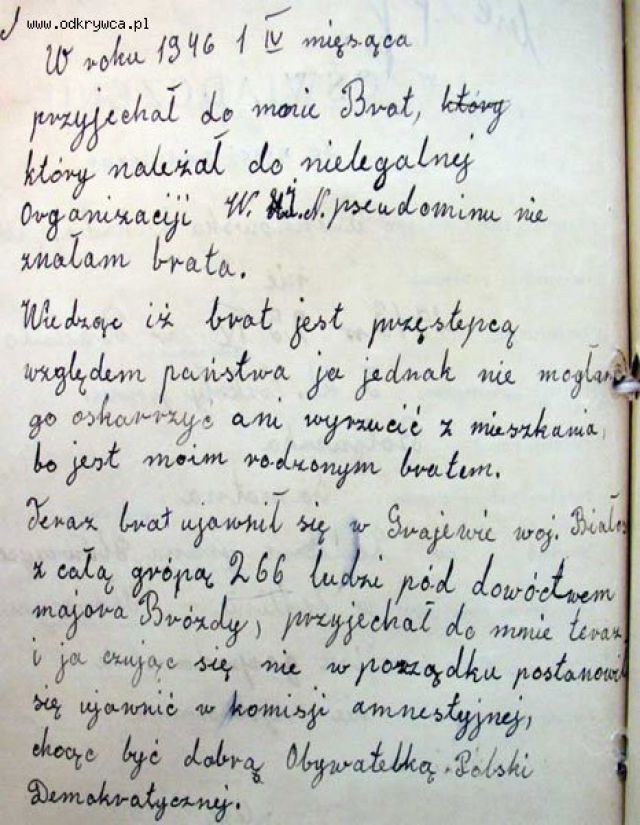 www.odkrywca.pl
W roku 1946 1 IV mięsąca
przyjechał do mnie Brat, który
który należał do nielegalnej
Organizaciji W. i. N. pseudominu nie
znałam brata.
Wiedząc iż brat jest przęstepcą
względem państwa ja jednak nie mogłam
go oskarrzyć ani wyrzucić z mieszkania,
bo jest moim rodzonym bratem.
Teraz brat ujawnił się w Grajewie woj. Białos
z całą grópą 266 ludzi pód dowóctwem
majora Brózdy, przyjechał do mnie teraz
i ja czując się nie w porządku postanowił
się ujawnić w komisji amnestyjnej,
chocąc być dobrą Obywatelką Polski
Demokratycznej.